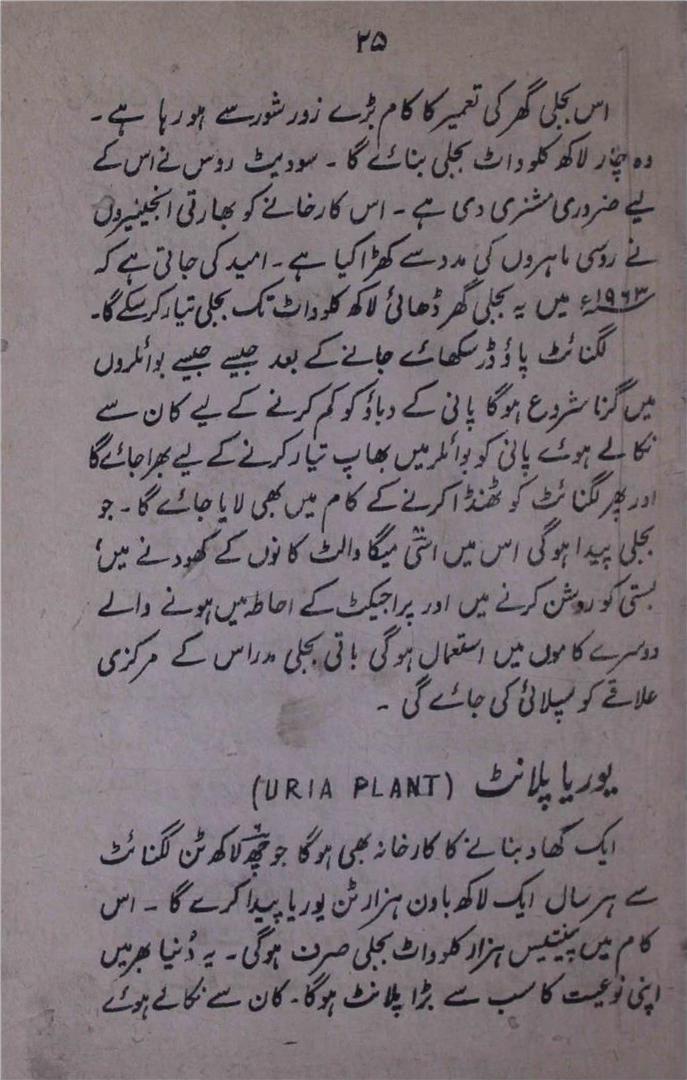 ۲۵
اس بجلی گھر کی تعمیر کا کام بڑے زور شور سے ہو رہا ہے۔
وہ چار لاکھ کلوواٹ بجلی بنائے گا۔ سوویٹ روس نے اس کے
لیے ضروری مشنری دی ہے۔ اس کارخانے کو بھارتی انجینیروں
نے روسی ماہروں کی مدد سے کھڑا کیا ہے۔ امید کی جاتی ہے کہ
۱۹۶۳ء میں یہ بجلی گھر ڈھائی لاکھ کلوواٹ تک بجلی تیار کرسکے گا۔
لگنائٹ پاؤڈر سکھائے جانے کے بعد جیسے جیسے بوائلروں
میں گرنا شروع ہوگا پانی کے دباؤ کو کم کرنے کے لیے کان سے
نکالے ہوئے پانی کو بوائلر میں بھاپ تیار کرنے کے لیے بھرا جائے گا
اور پھر لگنائٹ کو ٹھنڈا کرنے کے کام میں بھی لایا جائے گا۔ جو
بجلی پیدا ہوگی اس میں اسّی میگا والٹ کانوں کے کھودنے میں،
بستی کو روشن کرنے میں اور پراجیکٹ کے احاطہ میں ہونے والے
دوسرے کاموں میں استعمال ہوگی باقی بجلی مدراس کے مرکزی
علاقے کو سپلائی کی جائے گی۔
یوریا پلانٹ (URIA PLANT)
ایک کھاد بنانے کا کارخانہ بھی ہوگا جو چھ لاکھ ٹن لگنائٹ
سے ہر سال ایک لاکھ باون ہزار ٹن یوریا پیدا کرے گا۔ اس
کام میں پینتیس ہزار کلوواٹ بجلی صرف ہوگی۔ یہ دُنیا بھر میں
اپنی نوعیت کا سب سے بڑا پلانٹ ہوگا۔ کان سے نکالے ہوئے